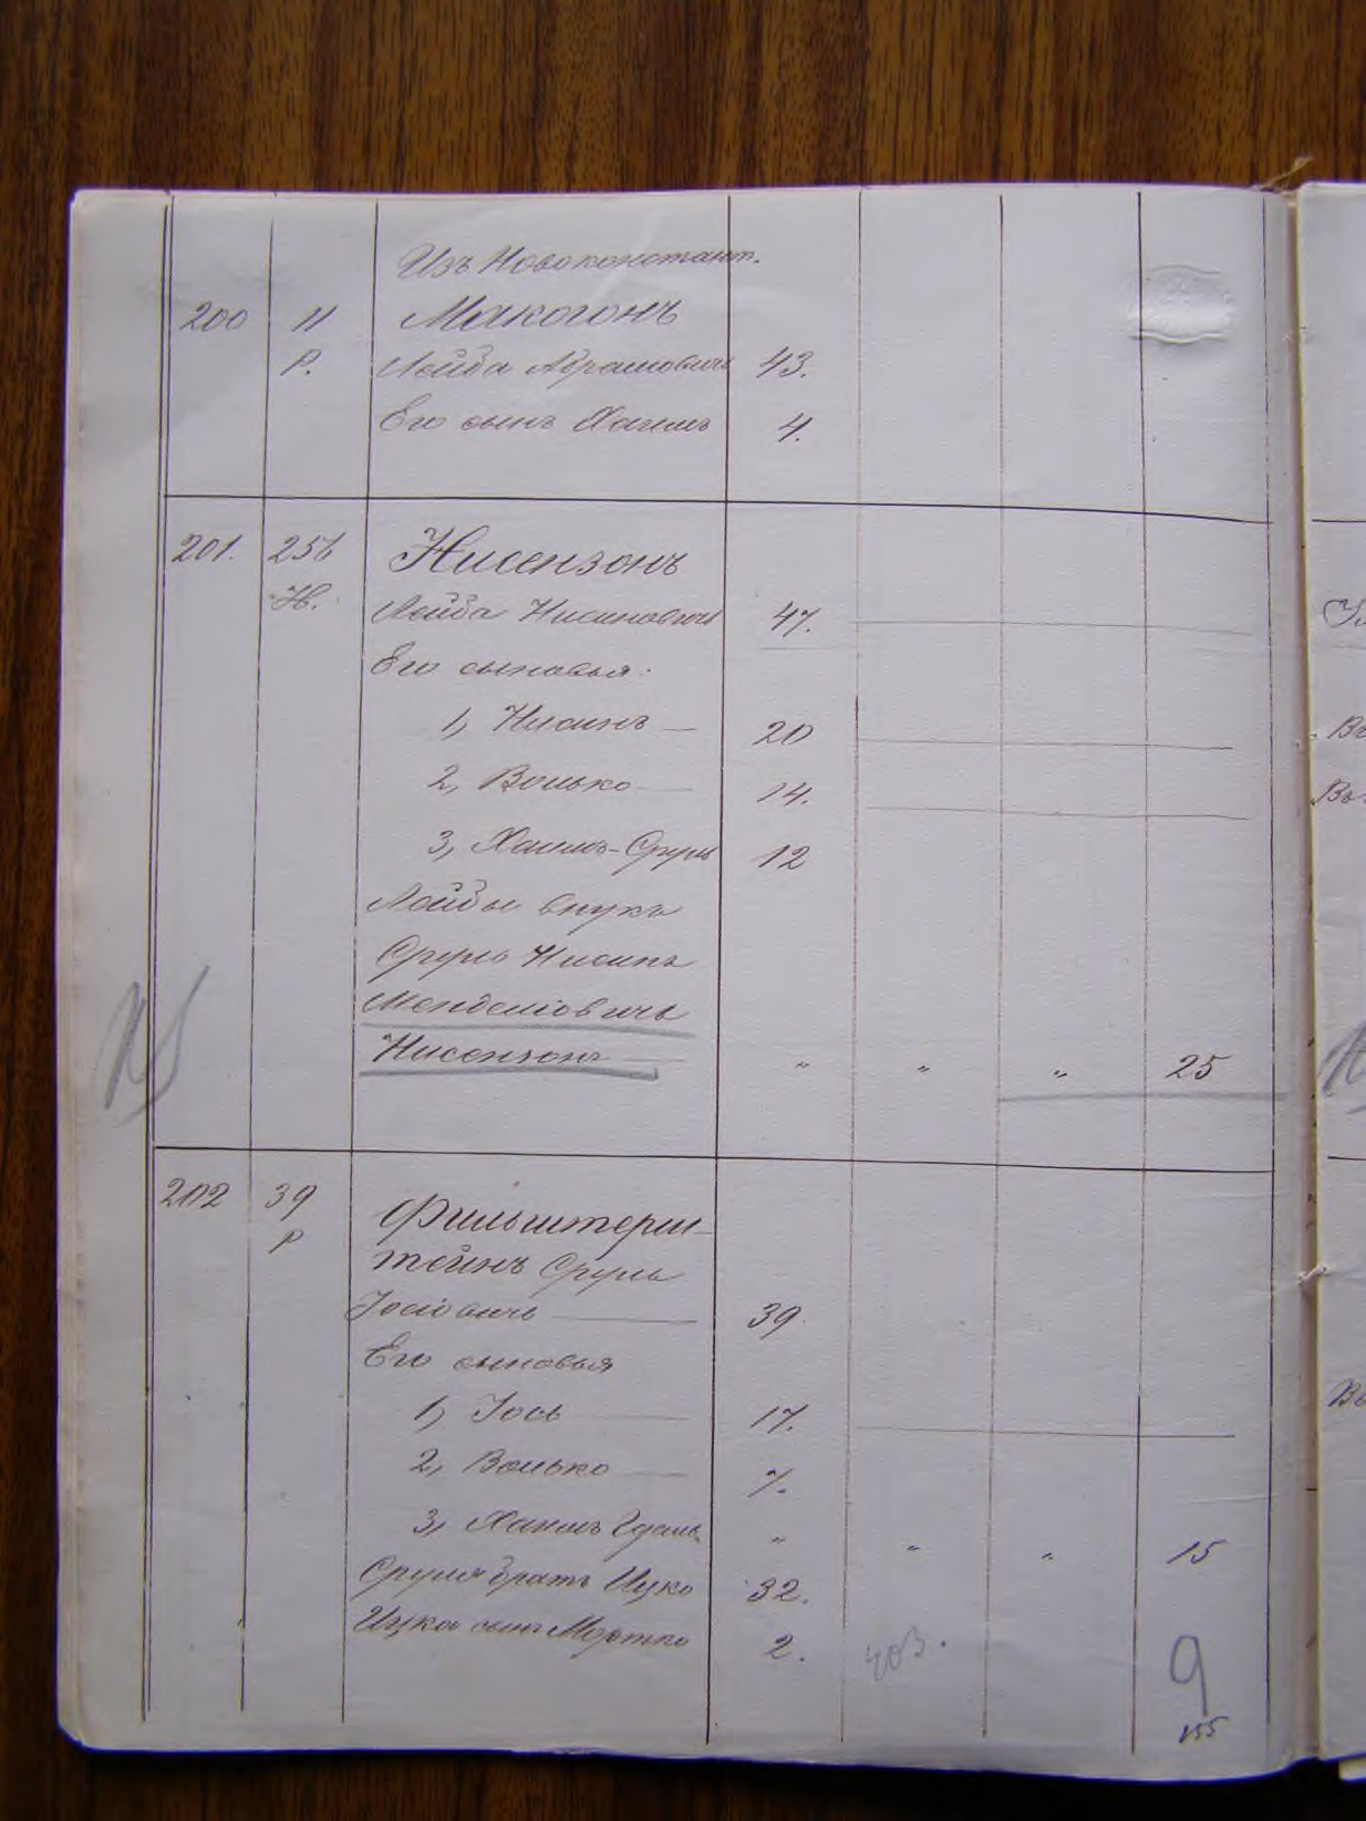 Изъ Новоконстант.
200 11 Макогонъ
Р. Лейба Абрамовичъ 43.
Его сынъ Хаимъ 4.
201. 256 Нисензонъ
Н. Лейба Нисиновичъ 47.
Его сыновья:
1, Нисинъ — 20
2, Волько — 14.
3, Хаимъ-Сруль 12
Лейбы внукъ
Сруль Нисинъ
Менделіовичъ
Нисензонъ — " " " 25
202 39 Фильштерш-
Р тейнъ Сруль
Іосіовичъ — 39.
Его сыновья
1, Іось — 17.
2, Волько — 7.
3, Хаимъ Гдаль " " " 15
Сруля братъ Ицко 32.
Ицка сынъ Мортко 2. 403.
9
155